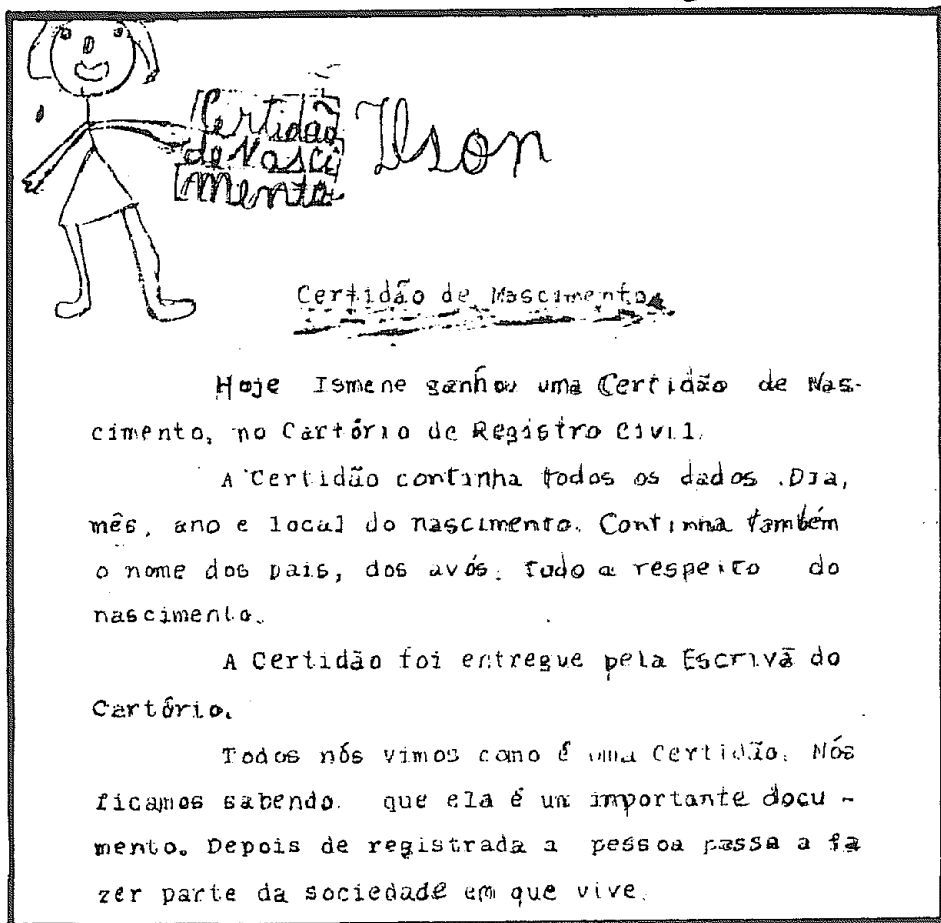 Certidão
de Nasci
mento
Ilson
Certidão de Nascimento
Hoje Ismene ganhou uma Certidão de Nas-
cimento, no Cartório de Registro Civil.
A Certidão continha todos os dados. Dia,
mês, ano e local do nascimento. Continha também
o nome dos pais, dos avós. Tudo a respeito do
nascimento.
A Certidão foi entregue pela Escrivã do
Cartório.
Todos nós vimos como é uma Certidão. Nós
ficamos sabendo. que ela é um importante docu-
mento. Depois de registrada a pessoa passa a fa
zer parte da sociedade em que vive.